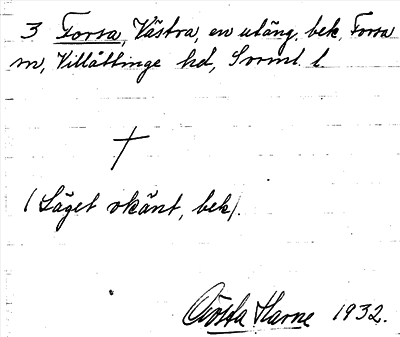 3 Forsa, Västra, en utäng, bek, Forsa
sn, Villåttinge hd, Sörml. l.
†
(Läget okänt, bek).
Gösta Harne 1932.